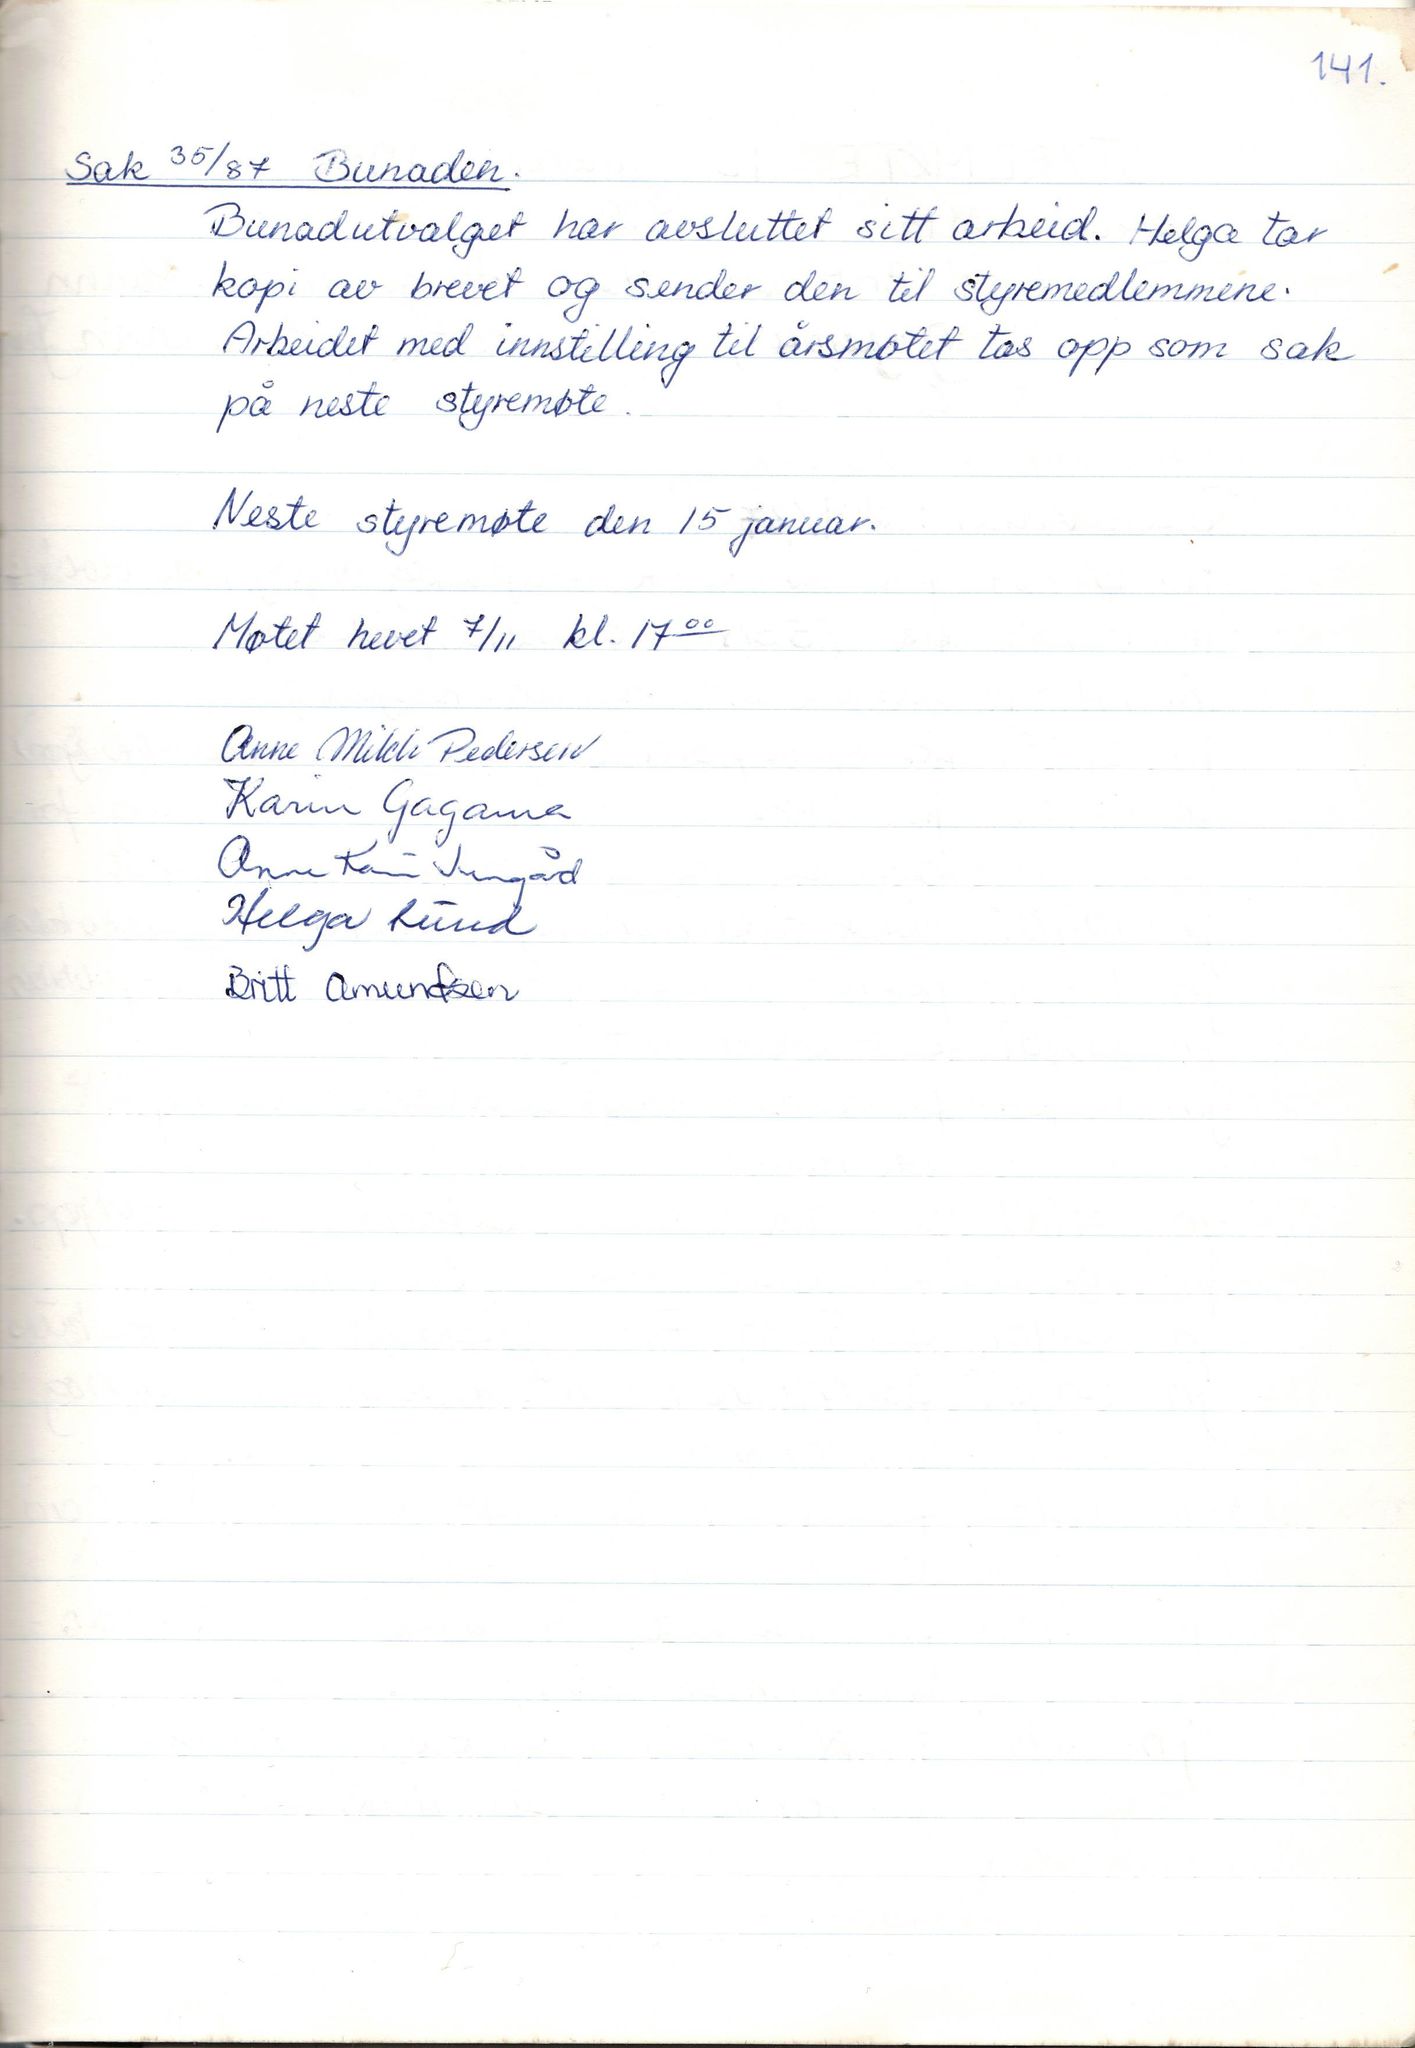 141.
Sak 35/87 Bunaden.
Bunadutvalget har avsluttet sitt arbeid. Helga tar
kopi av brevet og sender den til styremedlemmene.
Arbeidet med innstilling til årsmøtet tas opp som sak
på neste styremøte.
Neste styremøte den 15 januar.
Møtet hevet 7/11 kl. 17 00
Anne Pedersen
Karin
Anne
Helga Lund
Britt Amundsen